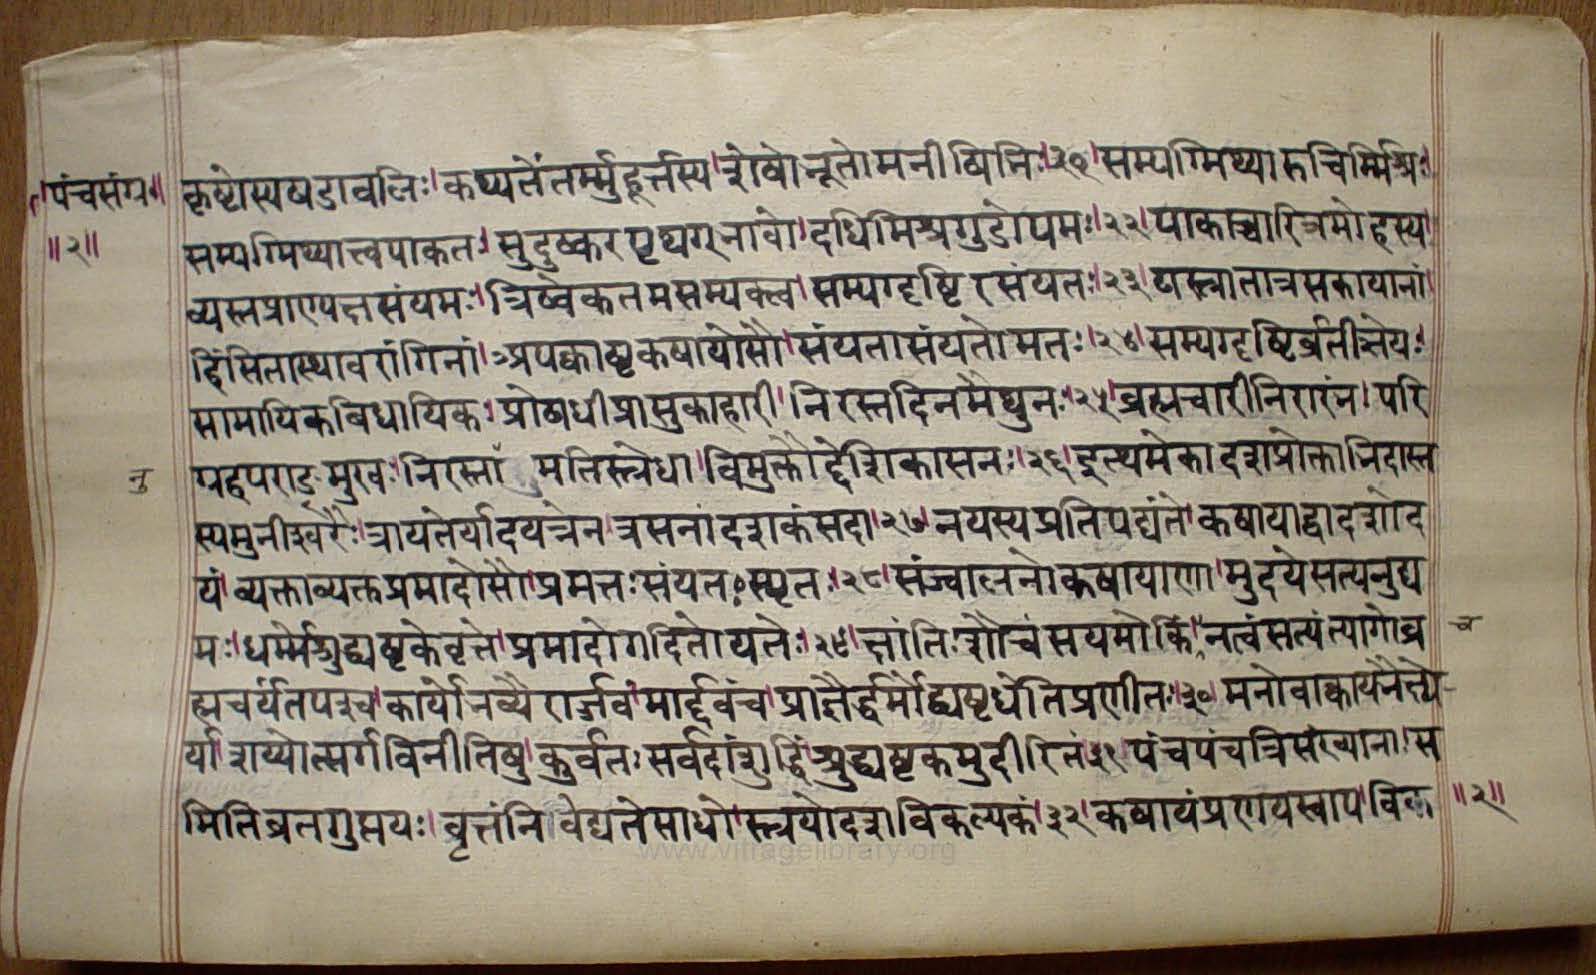 पंचसंग्र॰
॥२॥
कृष्टोस्यषडावलिः। कथ्यतेंतर्म्मुहूर्त्तस्य। शेषोनूतोमनीषिनिः।२१। सम्यग्मिथ्यारुचिर्म्मिश्रः।
सम्यग्मिथ्यात्वपाकतः। सुदुष्करपृथग्नावो। दधिमिश्रगुडोपमः।२२। पाकाच्चारित्रमोहस्य।
व्यस्तप्राण्यक्षसंयमः। त्रिष्वेकतमसम्यक्त्व। सम्यग्दृष्टिरसंयतः।२३। यस्त्रातात्रसकायानां।
हिंसितास्थावरांगिनां। अपक्वाष्टकषायोसौ। संयतासंयतोमतः।२४। सम्यग्दृष्टिर्व्रतीज्ञेयः।
सामायिकविधायिकः। प्रोषधीप्रासुकाहारी। निरस्तदिनमैथुनः।२५। ब्रह्मचारीनिरारंनः। परि
ग्रहपराङमुखः। निरस्तां मतिस्त्रेधा। विमुक्तौद्देशिकासनः।२६। इत्थमेकादशप्रोक्तानिदास्त
नु
स्यमुनीश्वरैः। त्रायतेर्यादयत्नेन। त्रसनांदशकंसदा।२७। नयस्यप्रतिपद्यंते। कषायाद्वादशोद
यं। व्यक्ताव्यक्तप्रमादोसौ। प्रमत्तःसंयतःस्मृतः।२८। संज्वालनोकषायाणा। मुदयेसत्यनुद्य
मः। धर्म्मेशुद्ध्यष्टकेवृत्ते। प्रमादोगदितोयतेः।२९। क्षांतिःशौचंसयमोकिंनत्वंसत्यंत्यागोब्र
च
ह्मचर्यतपश्च। कार्योनव्यैरार्ज्जवंमार्द्दवंच। प्राज्ञैर्द्धर्मोद्ध्यष्टधेतिप्रणीतः।३०। मनोवाक्कायनैक्ष्ये
र्याशय्योत्सर्गविनीतिषु। कुर्वतःसर्वदांशुद्धिं। शुद्ध्यष्टकमुदीरितं।३१। पंचपंचत्रिसंख्यानाः। स
मितिव्रतगुप्तयः। वृत्तंनिवेद्यतेसाधो। स्त्रयोदशविकल्पकं।३२। कषायंप्रणयस्वाप। विक
॥२॥
www.vitragelibrary.org